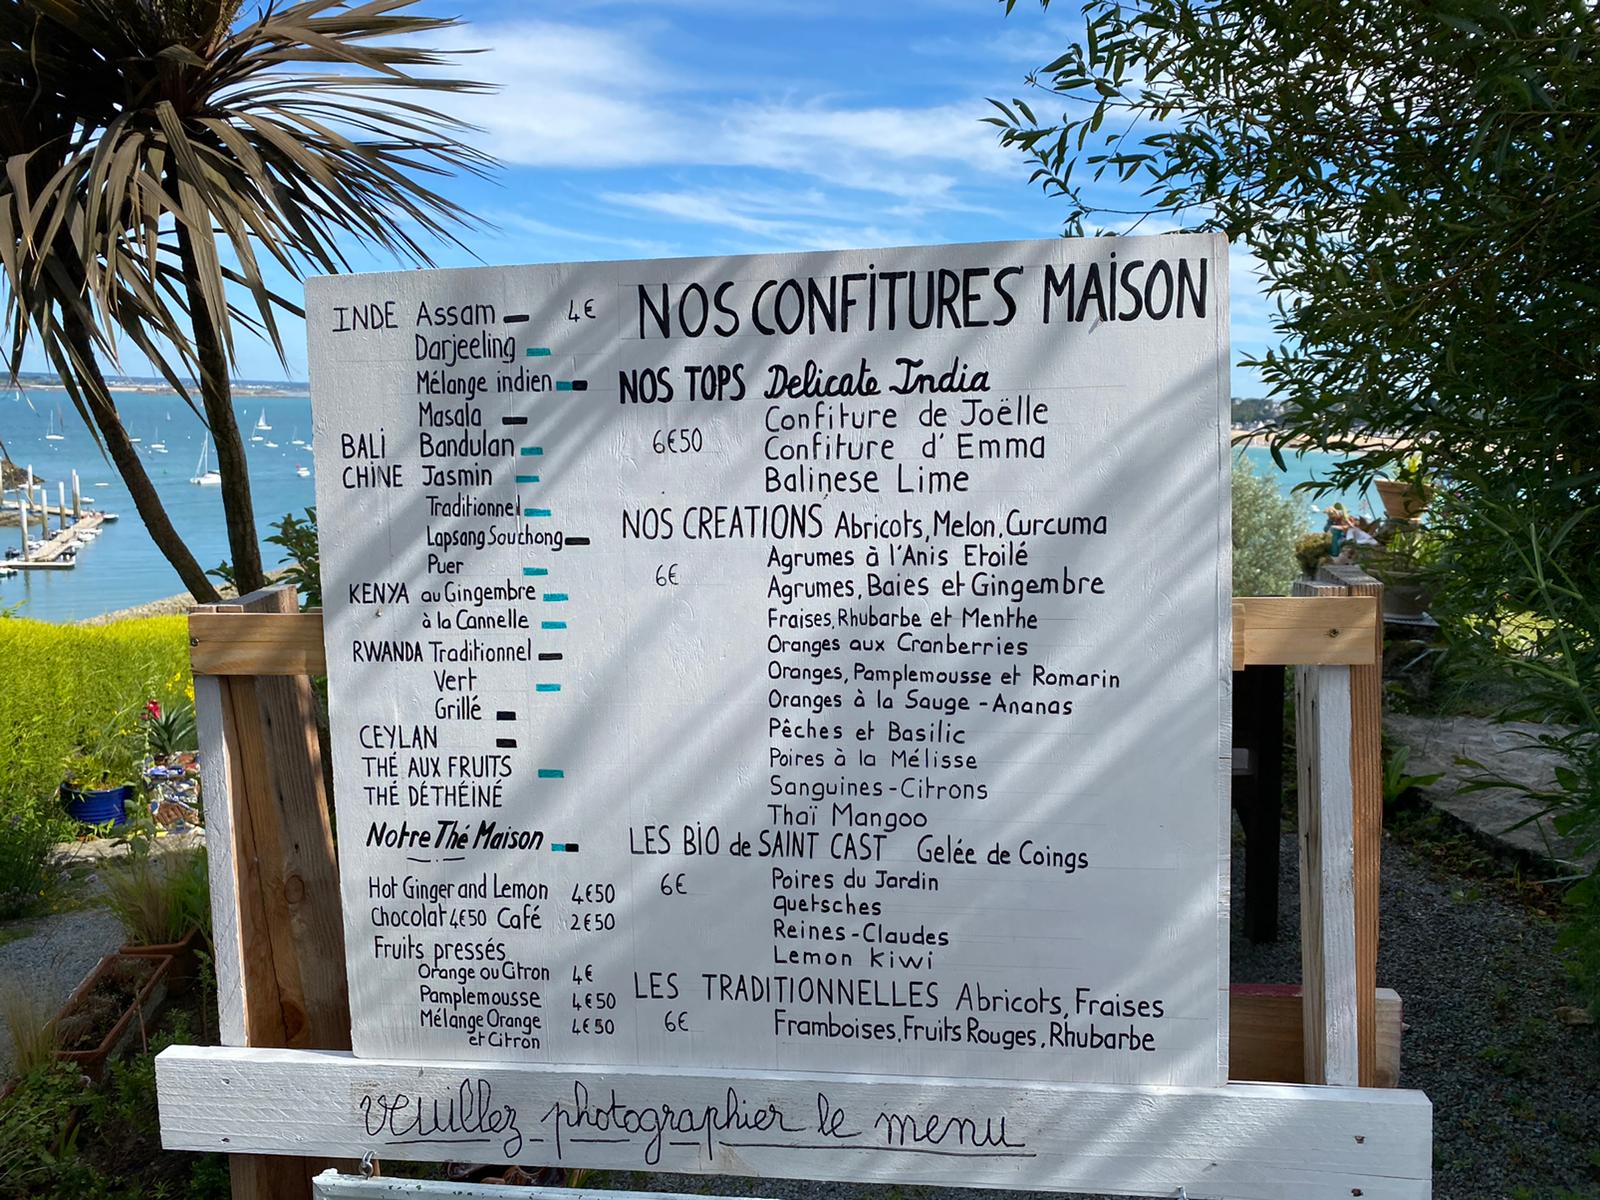 INDE Assam 4€
Darjeeling
Mélange indien
Masala
BALI Bandulan
CHINE Jasmin
Traditionnel
Lapsang Souchong
Puer
KENYA au Gingembre
à la Cannelle
RWANDA Traditionnel
Vert
Grillé
CEYLAN
THÉ AUX FRUITS
THÉ DÉTHÉINÉ
Notre Thé Maison
Hot Ginger and Lemon 4€50
Chocolat 4€50 Café 2€50
Fruits pressés
Orange ou Citron 4€
Pamplemousse 4€50
Mélange Orange 4€50
et Citron
NOS CONFITURES MAISON
NOS TOPS Delicate India
Confiture de Joëlle
6€50 Confiture d'Emma
Balinese Lime
NOS CREATIONS Abricots, Melon, Curcuma
Agrumes à l'Anis Etoilé
6€ Agrumes, Baies et Gingembre
Fraises, Rhubarbe et Menthe
Oranges aux Cranberries
Oranges, Pamplemousse et Romarin
Oranges à la Sauge - Ananas
Pêches et Basilic
Poires à la Mélisse
Sanguines - Citrons
Thaï Mangoo
LES BIO de SAINT CAST Gelée de Coings
6€ Poires du Jardin
quetsches
Reines - Claudes
Lemon Kiwi
LES TRADITIONNELLES Abricots, Fraises
6€ Framboises, Fruits Rouges, Rhubarbe
veuillez photographier le menu